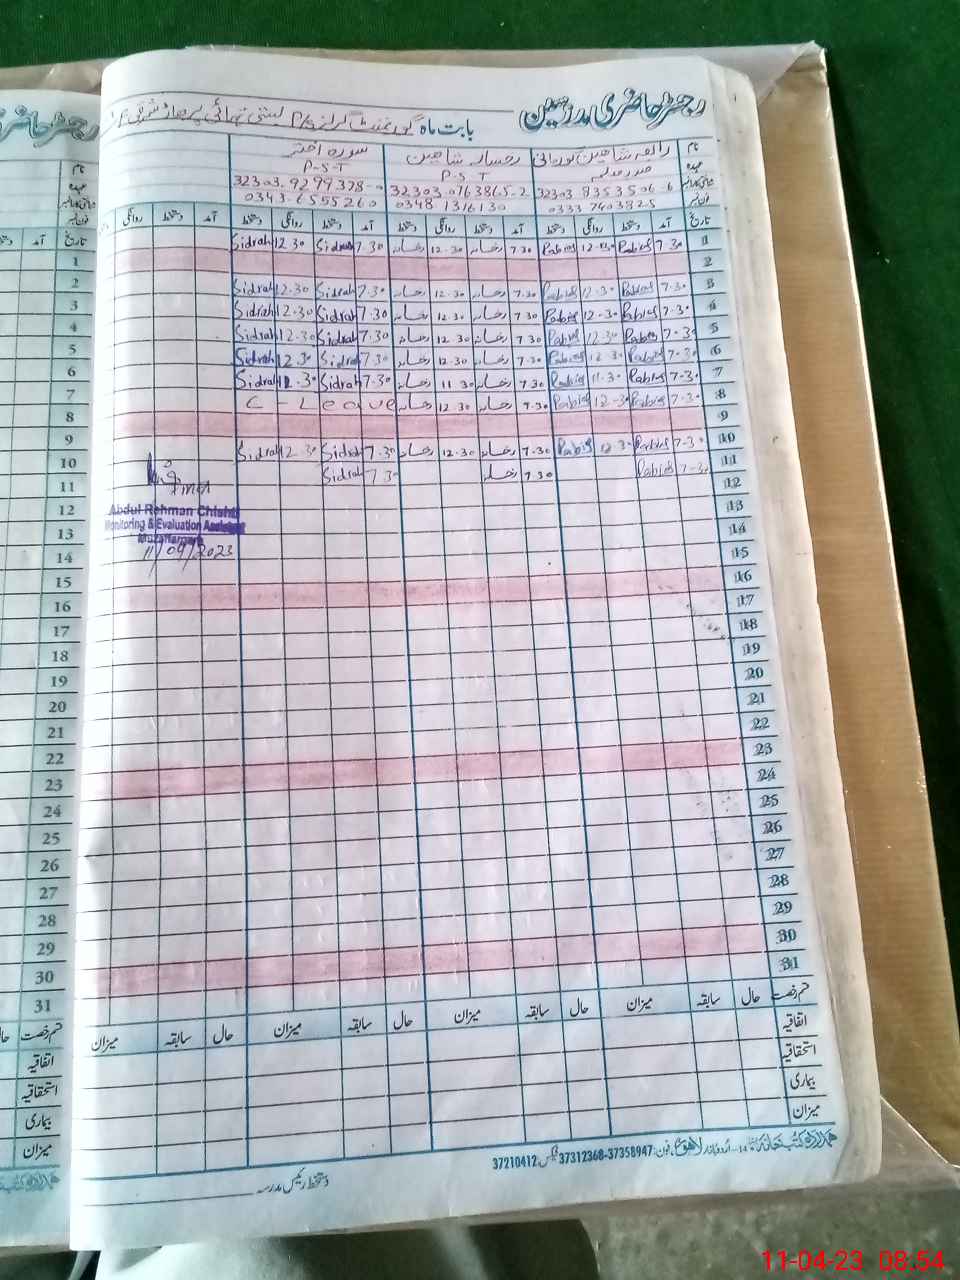 رجسٹر حاضری مدرسین
بابت ماہ گورنمنٹ گرلز P/S بستی
نام رابعہ شاہین گورمانی رخسانہ شاہین سدرہ اختر
عہدہ صدر معلمہ P-S-T P-S-T
شناختی کارڈ نمبر 32303 8353506-6 32303 0763865-2 32303-9299378-0
فون نمبر 0333 7403825 0348 1316130 0343-6555260
تاریخ آمد دستخط روانگی دستخط آمد دستخط روانگی دستخط آمد دستخط روانگی دستخط آمد دستخط روانگی
1 7-30 Rabia 12-30 Rabia 7.30 رخسانہ 12.30 رخسانہ 7.30 Sidrah 12.30 Sidrah
2
3 7-30 Rabia 12-30 Rabia 7.30 رخسانہ 12.30 رخسانہ 7-30 Sidrah 12-30 Sidrah
4 7-30 Rabia 12-30 Rabia 7.30 رخسانہ 12.30 رخسانہ 7-30 Sidrah 12-30 Sidrah
5 7-30 Rabia 12-30 Rabia 7.30 رخسانہ 12.30 رخسانہ 7-30 Sidrah 12-30 Sidrah
6 7-30 Rabia 12-30 Rabia 7.30 رخسانہ 12.30 رخسانہ 7-30 Sidrah 12.30 Sidrah
7 7-30 Rabia 11-30 Rabia 7.30 رخسانہ 11 30 رخسانہ 7-30 Sidrah 11.30 Sidrah
8 7-30 Rabia 12-30 Rabia 7.30 رخسانہ 12.30 رخسانہ C-Leave
9
10 7-30 Rabia 12-30 Rabia 7.30 رخسانہ 12.30 رخسانہ 7.30 Sidrah 12.30 Sidrah
11 7-30 Rabia 7.30 رخسانہ 7.30 Sidrah
12
Abdul Rehman Chishti
Monitoring & Evaluation Assistant
Muzaffargarh
11/04/2023
13
14
15
16
17
18
19
20
21
22
23
24
25
26
27
28
29
30
31
قسم رخصت حال سابقہ میزان حال سابقہ میزان حال سابقہ میزان حال سابقہ میزان
اتفاقیہ
استحقاقیہ
بیماری
میزان
ہمدرد کتب خانہ 14-اردو بازار لاہور، فون: 37358947-37312368 فیکس 37210412
دستخط رئیس مدرسہ
رجسٹر حاضری
نام
عہدہ
شناختی کارڈ نمبر
فون نمبر
تاریخ آمد
1
2
3
4
5
6
7
8
9
10
11
12
13
14
15
16
17
18
19
20
21
22
23
24
25
26
27
28
29
30
31
قسم رخصت
اتفاقیہ
استحقاقیہ
بیماری
میزان
11-04-23 08:54